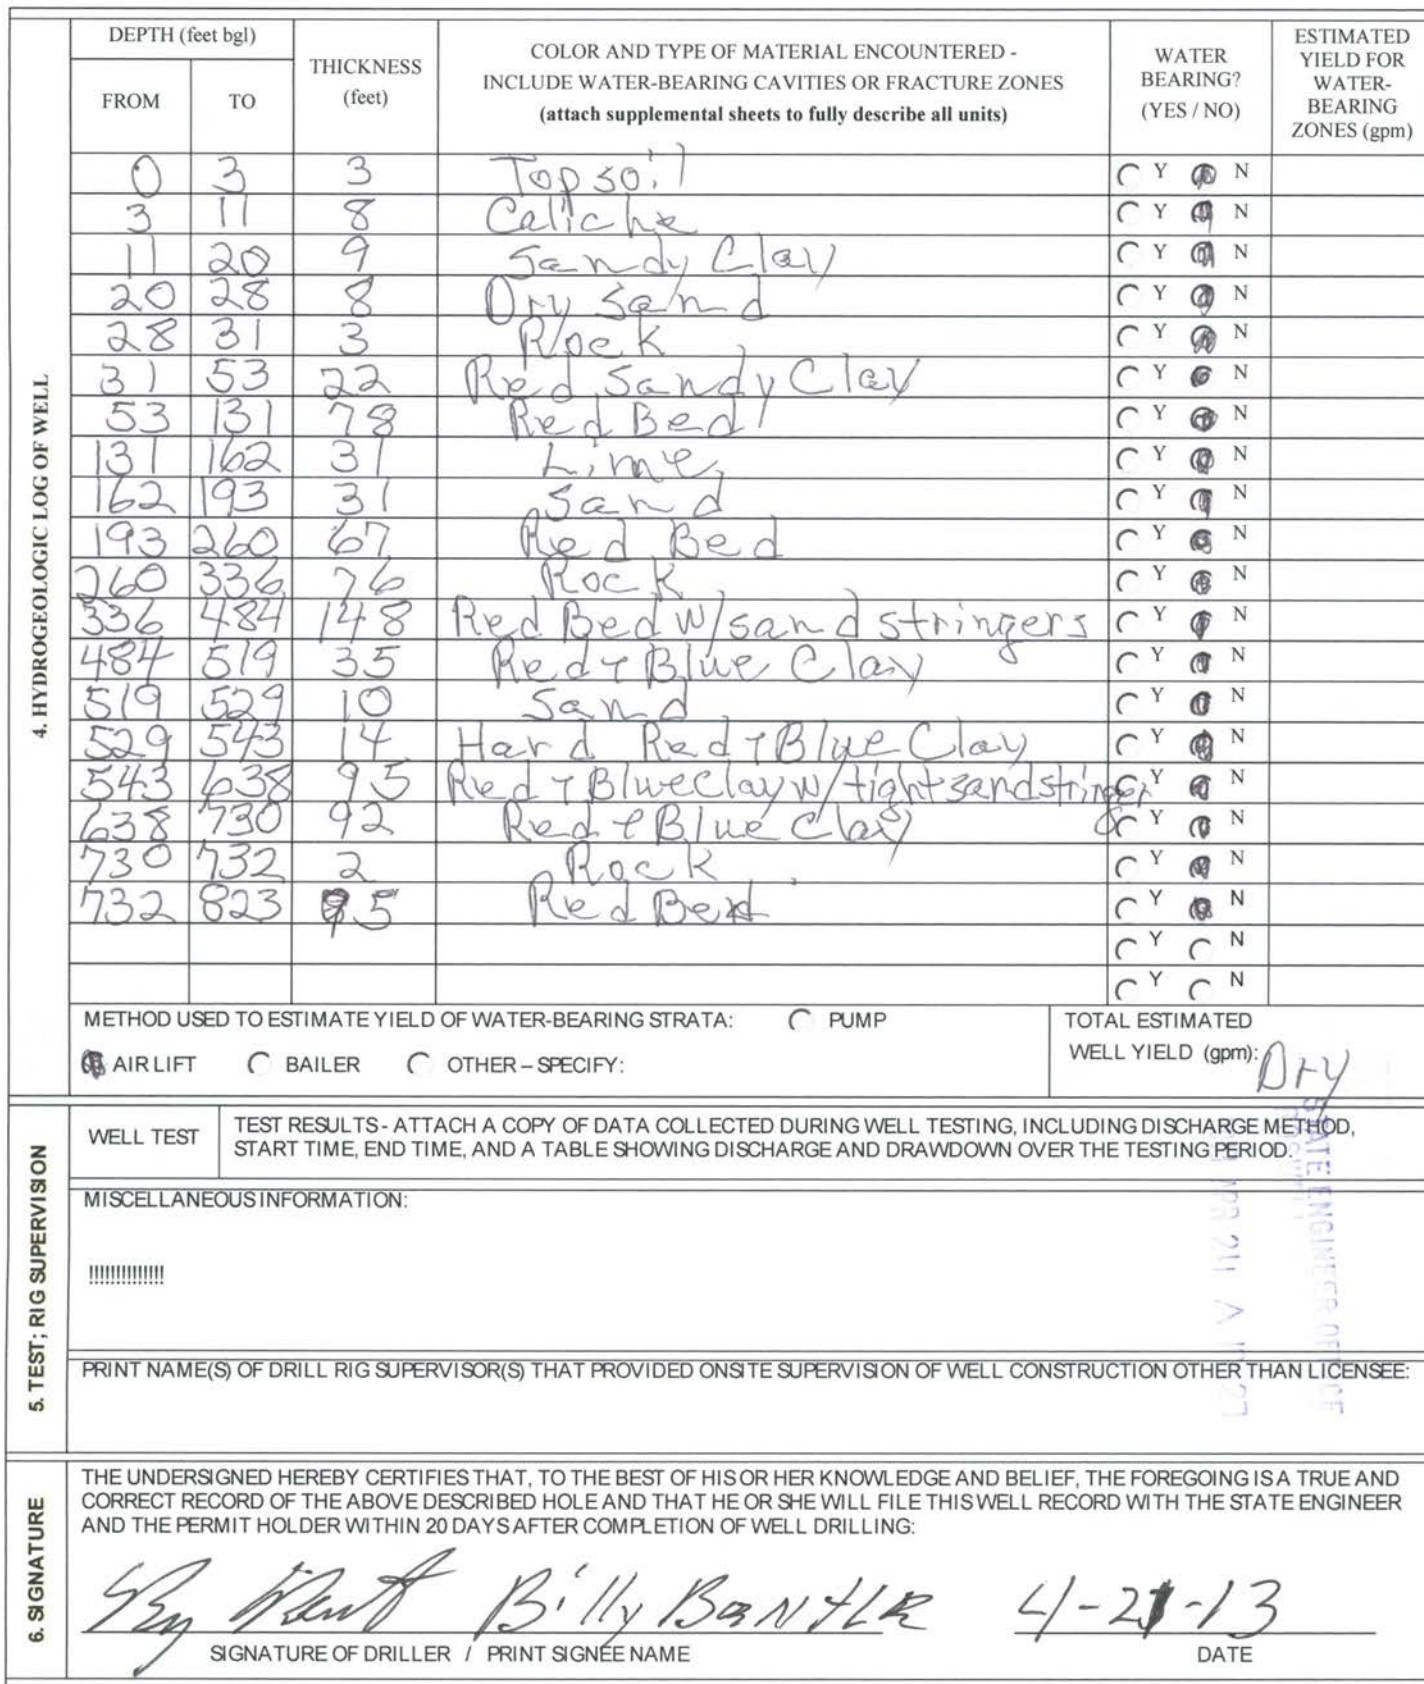 DEPTH (feet bgl)
FROM TO
THICKNESS
(feet)
COLOR AND TYPE OF MATERIAL ENCOUNTERED -
INCLUDE WATER-BEARING CAVITIES OR FRACTURE ZONES
(attach supplemental sheets to fully describe all units)
WATER
BEARING?
(YES / NO)
ESTIMATED
YIELD FOR
WATER-
BEARING
ZONES (gpm)
4. HYDROGEOLOGIC LOG OF WELL
0 3 3 Topsoil Y N
3 11 8 Caliche Y N
11 20 9 Sandy Clay Y N
20 28 8 Dry Sand Y N
28 31 3 Rock Y N
31 53 22 Red Sandy Clay Y N
53 131 78 Red Bed Y N
131 162 31 Lime Y N
162 193 31 Sand Y N
193 260 67 Red Bed Y N
260 336 76 Rock Y N
336 484 148 Red Bed w/sand stringers Y N
484 519 35 Red + Blue Clay Y N
519 529 10 Sand Y N
529 543 14 Hard Red + Blue Clay Y N
543 638 95 Red + Blue Clay w/tight sand stringer Y N
638 730 92 Red + Blue Clay Y N
730 732 2 Rock Y N
732 823 95 Red Bed Y N
Y N
Y N
METHOD USED TO ESTIMATE YIELD OF WATER-BEARING STRATA: PUMP
AIR LIFT BAILER OTHER – SPECIFY:
TOTAL ESTIMATED
WELL YIELD (gpm): Dry
5. TEST; RIG SUPERVISION
WELL TEST
TEST RESULTS - ATTACH A COPY OF DATA COLLECTED DURING WELL TESTING, INCLUDING DISCHARGE METHOD,
START TIME, END TIME, AND A TABLE SHOWING DISCHARGE AND DRAWDOWN OVER THE TESTING PERIOD.
MISCELLANEOUS INFORMATION:
!!!!!!!!!!!!!!
STATE ENGINEER OFFICE
APR 24 A
PRINT NAME(S) OF DRILL RIG SUPERVISOR(S) THAT PROVIDED ONSITE SUPERVISION OF WELL CONSTRUCTION OTHER THAN LICENSEE:
6. SIGNATURE
THE UNDERSIGNED HEREBY CERTIFIES THAT, TO THE BEST OF HIS OR HER KNOWLEDGE AND BELIEF, THE FOREGOING IS A TRUE AND
CORRECT RECORD OF THE ABOVE DESCRIBED HOLE AND THAT HE OR SHE WILL FILE THIS WELL RECORD WITH THE STATE ENGINEER
AND THE PERMIT HOLDER WITHIN 20 DAYS AFTER COMPLETION OF WELL DRILLING:
Billy 4-21-13
SIGNATURE OF DRILLER / PRINT SIGNEE NAME DATE